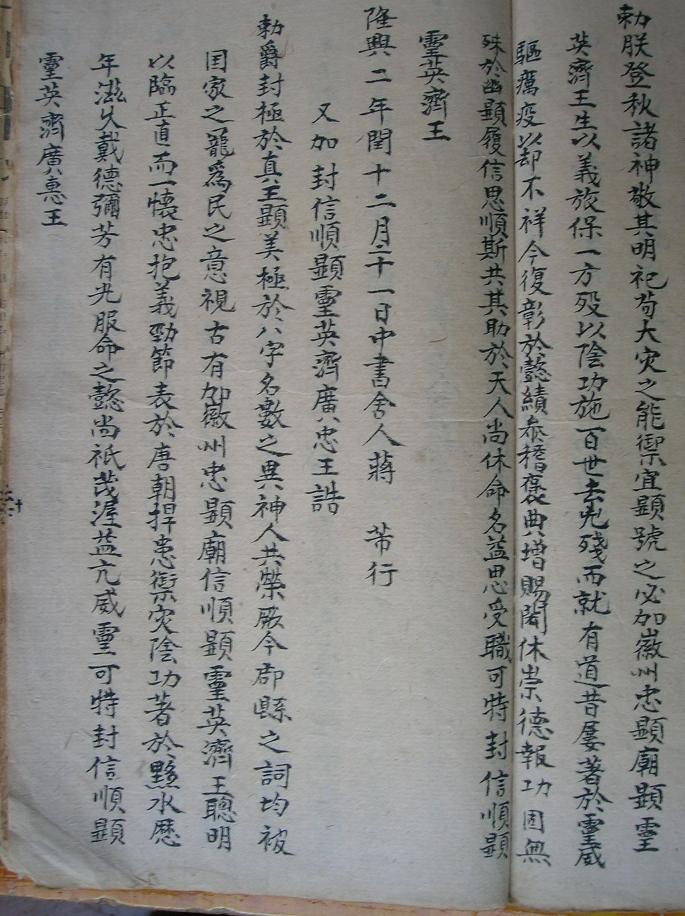 勅朕登秋諸神敬其明祀苟大灾之能禦宜顯號之必加徽州忠顯廟顯靈
英濟王生以義旅保一方殁以陰功施百世去兇殘而就有道昔屢著於靈威
驅癘疫以却不祥今復彰於懿績叅稽褒典增賜閎休崇德報功固無
殊於幽顯履信思順斯共其助於天人尚休命名益思受職可特封信順顯
靈英濟王
隆興二年閏十二月二十一日中書舍人蔣 芾行
又加封信順顯靈英濟廣忠王誥
勅爵封極於真王顯美極於八字名數之異神人共榮厥今郡縣之詞均被
囯家之寵為民之意視古有加徽州忠顯廟信順顯靈英濟王聰明
以臨正直而一懷忠抱義勁節表於唐朝捍患禦灾陰功著於黟水歷
年滋久戴德彌芳有光服命之懿尚祇茂渥益亢威靈可特封信順顯
靈英濟廣惠王